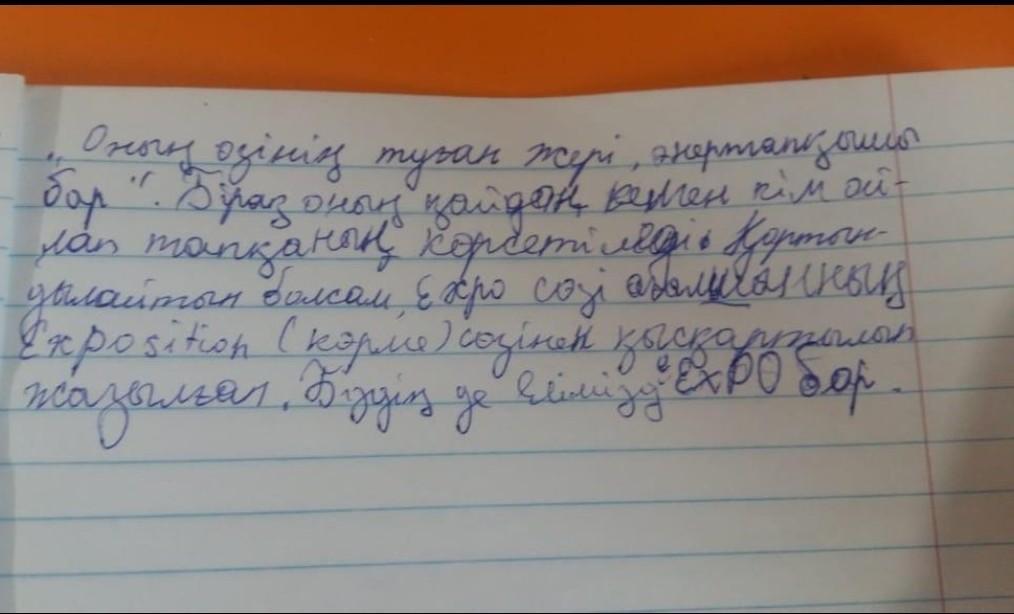 „Оның өзінің туған жері, өнертапқышы
бар". Біраз оның қайдан келген кім ой-
лап тапқанын көрсетіледі. Қортын-
дылайтын болсам, Expo сөзі
Exposition (көрме) сөзінен қысқартылып
жазылған. Біздің де елімізде EXPO бар.